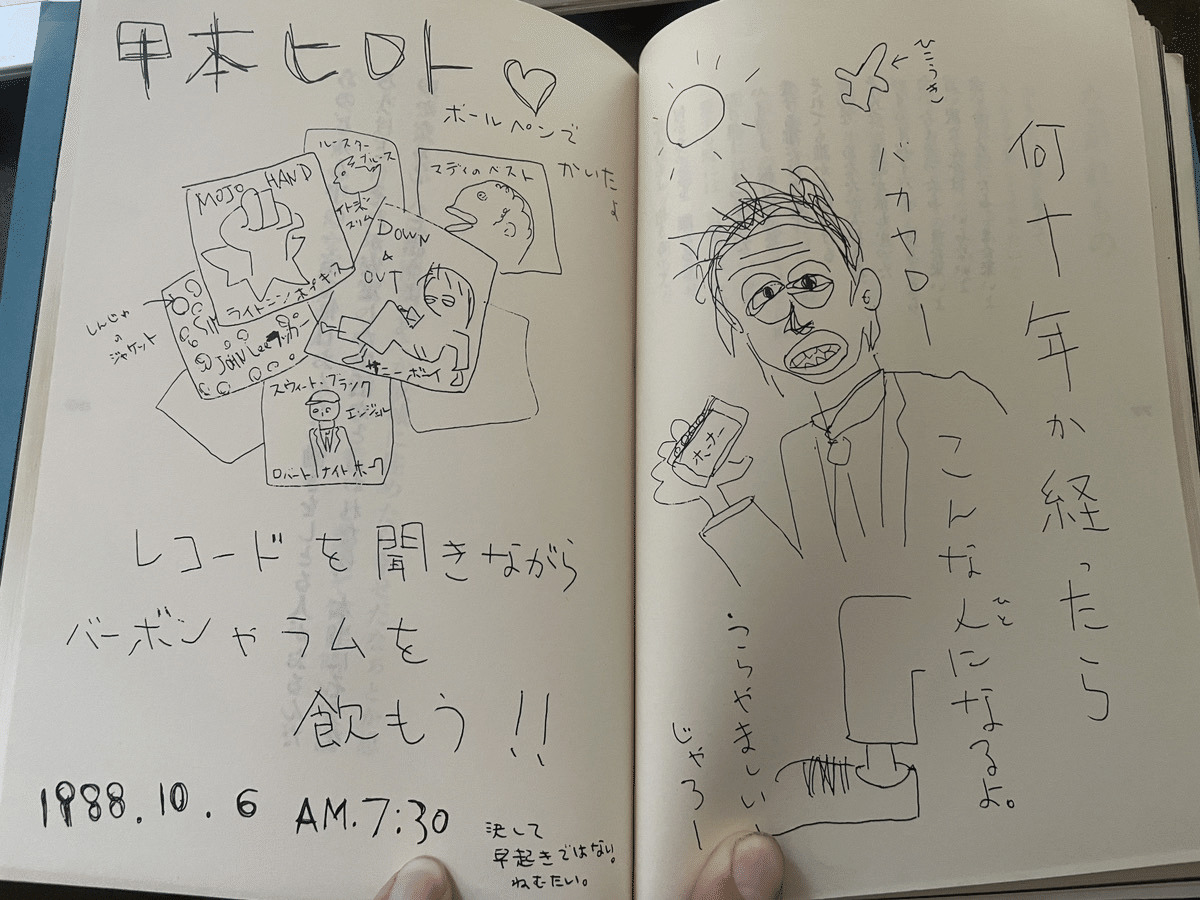 甲本ヒロト♡
ボールペンで
かいたよ
MOJO HAND
ライトニン ホプキンス
ルースター
ブルース
ライトニン
スリム
マディのベスト
DOWN
&
OUT
サニーボーイ
しんじゃ
の
ジャケット
JOHN Lee フッカー
スウィート・ブラック
エンジェル
ロバートナイトホーク
レコードを聞きながら
バーボンやラムを
飲もう!!
1988.10.6 AM.7:30
決して
早起きではない。
ねむたい。
ひこうき
何十年か経ったら
こんな人になるよ。
ひと
バカヤロー
ホーナー
うらやましい
じゃろー